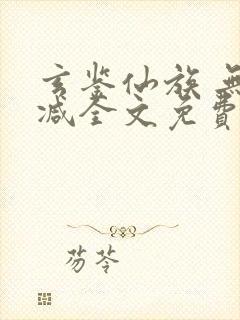 玄鉴仙族 無
减全文免費
芴苓